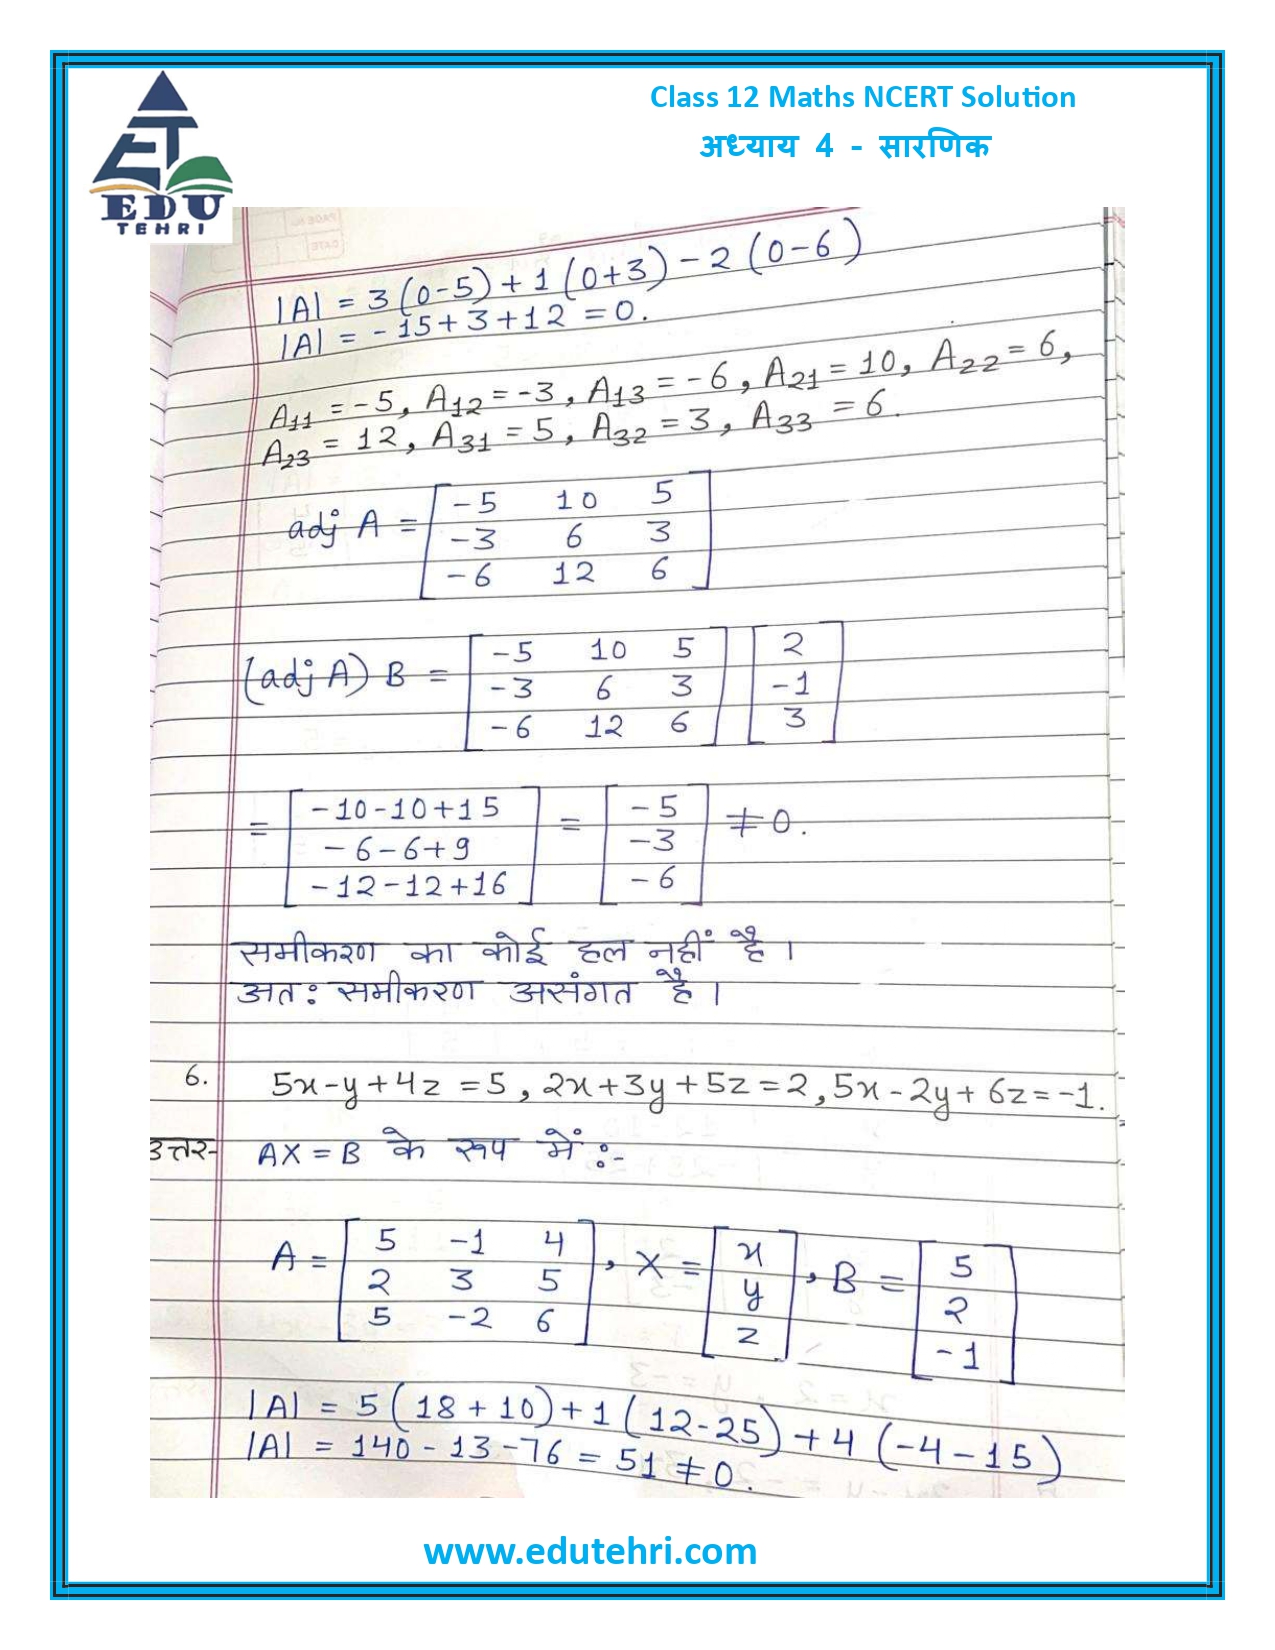 Class 12 Maths NCERT Solution
अध्याय 4 - सारणिक
EDU
TEHRI
|A| = 3(0-5)+1(0+3)-2(0-6)
|A| = -15+3+12 = 0.
A11 = -5, A12 = -3, A13 = -6, A21 = 10, A22 = 6,
A23 = 12, A31 = 5, A32 = 3, A33 = 6.
adj A = [-5 10 5
-3 6 3
-6 12 6]
(adj A) B = [-5 10 5 [2
-3 6 3 -1
-6 12 6] 3]
= [-10-10+15 = [-5 ≠ 0.
-6-6+9 -3
-12-12+16] -6]
समीकरण का कोई हल नहीं है।
अत: समीकरण असंगत है।
6. 5x-y+4z=5, 2x+3y+5z=2, 5x-2y+6z=-1.
उत्तर- AX = B के रूप में:-
A = [5 -1 4 , X = [x , B = [5
2 3 5 y 2
5 -2 6] z] -1]
|A| = 5(18+10)+1(12-25)+4(-4-15)
|A| = 140-13-76 = 51 ≠ 0.
www.edutehri.com